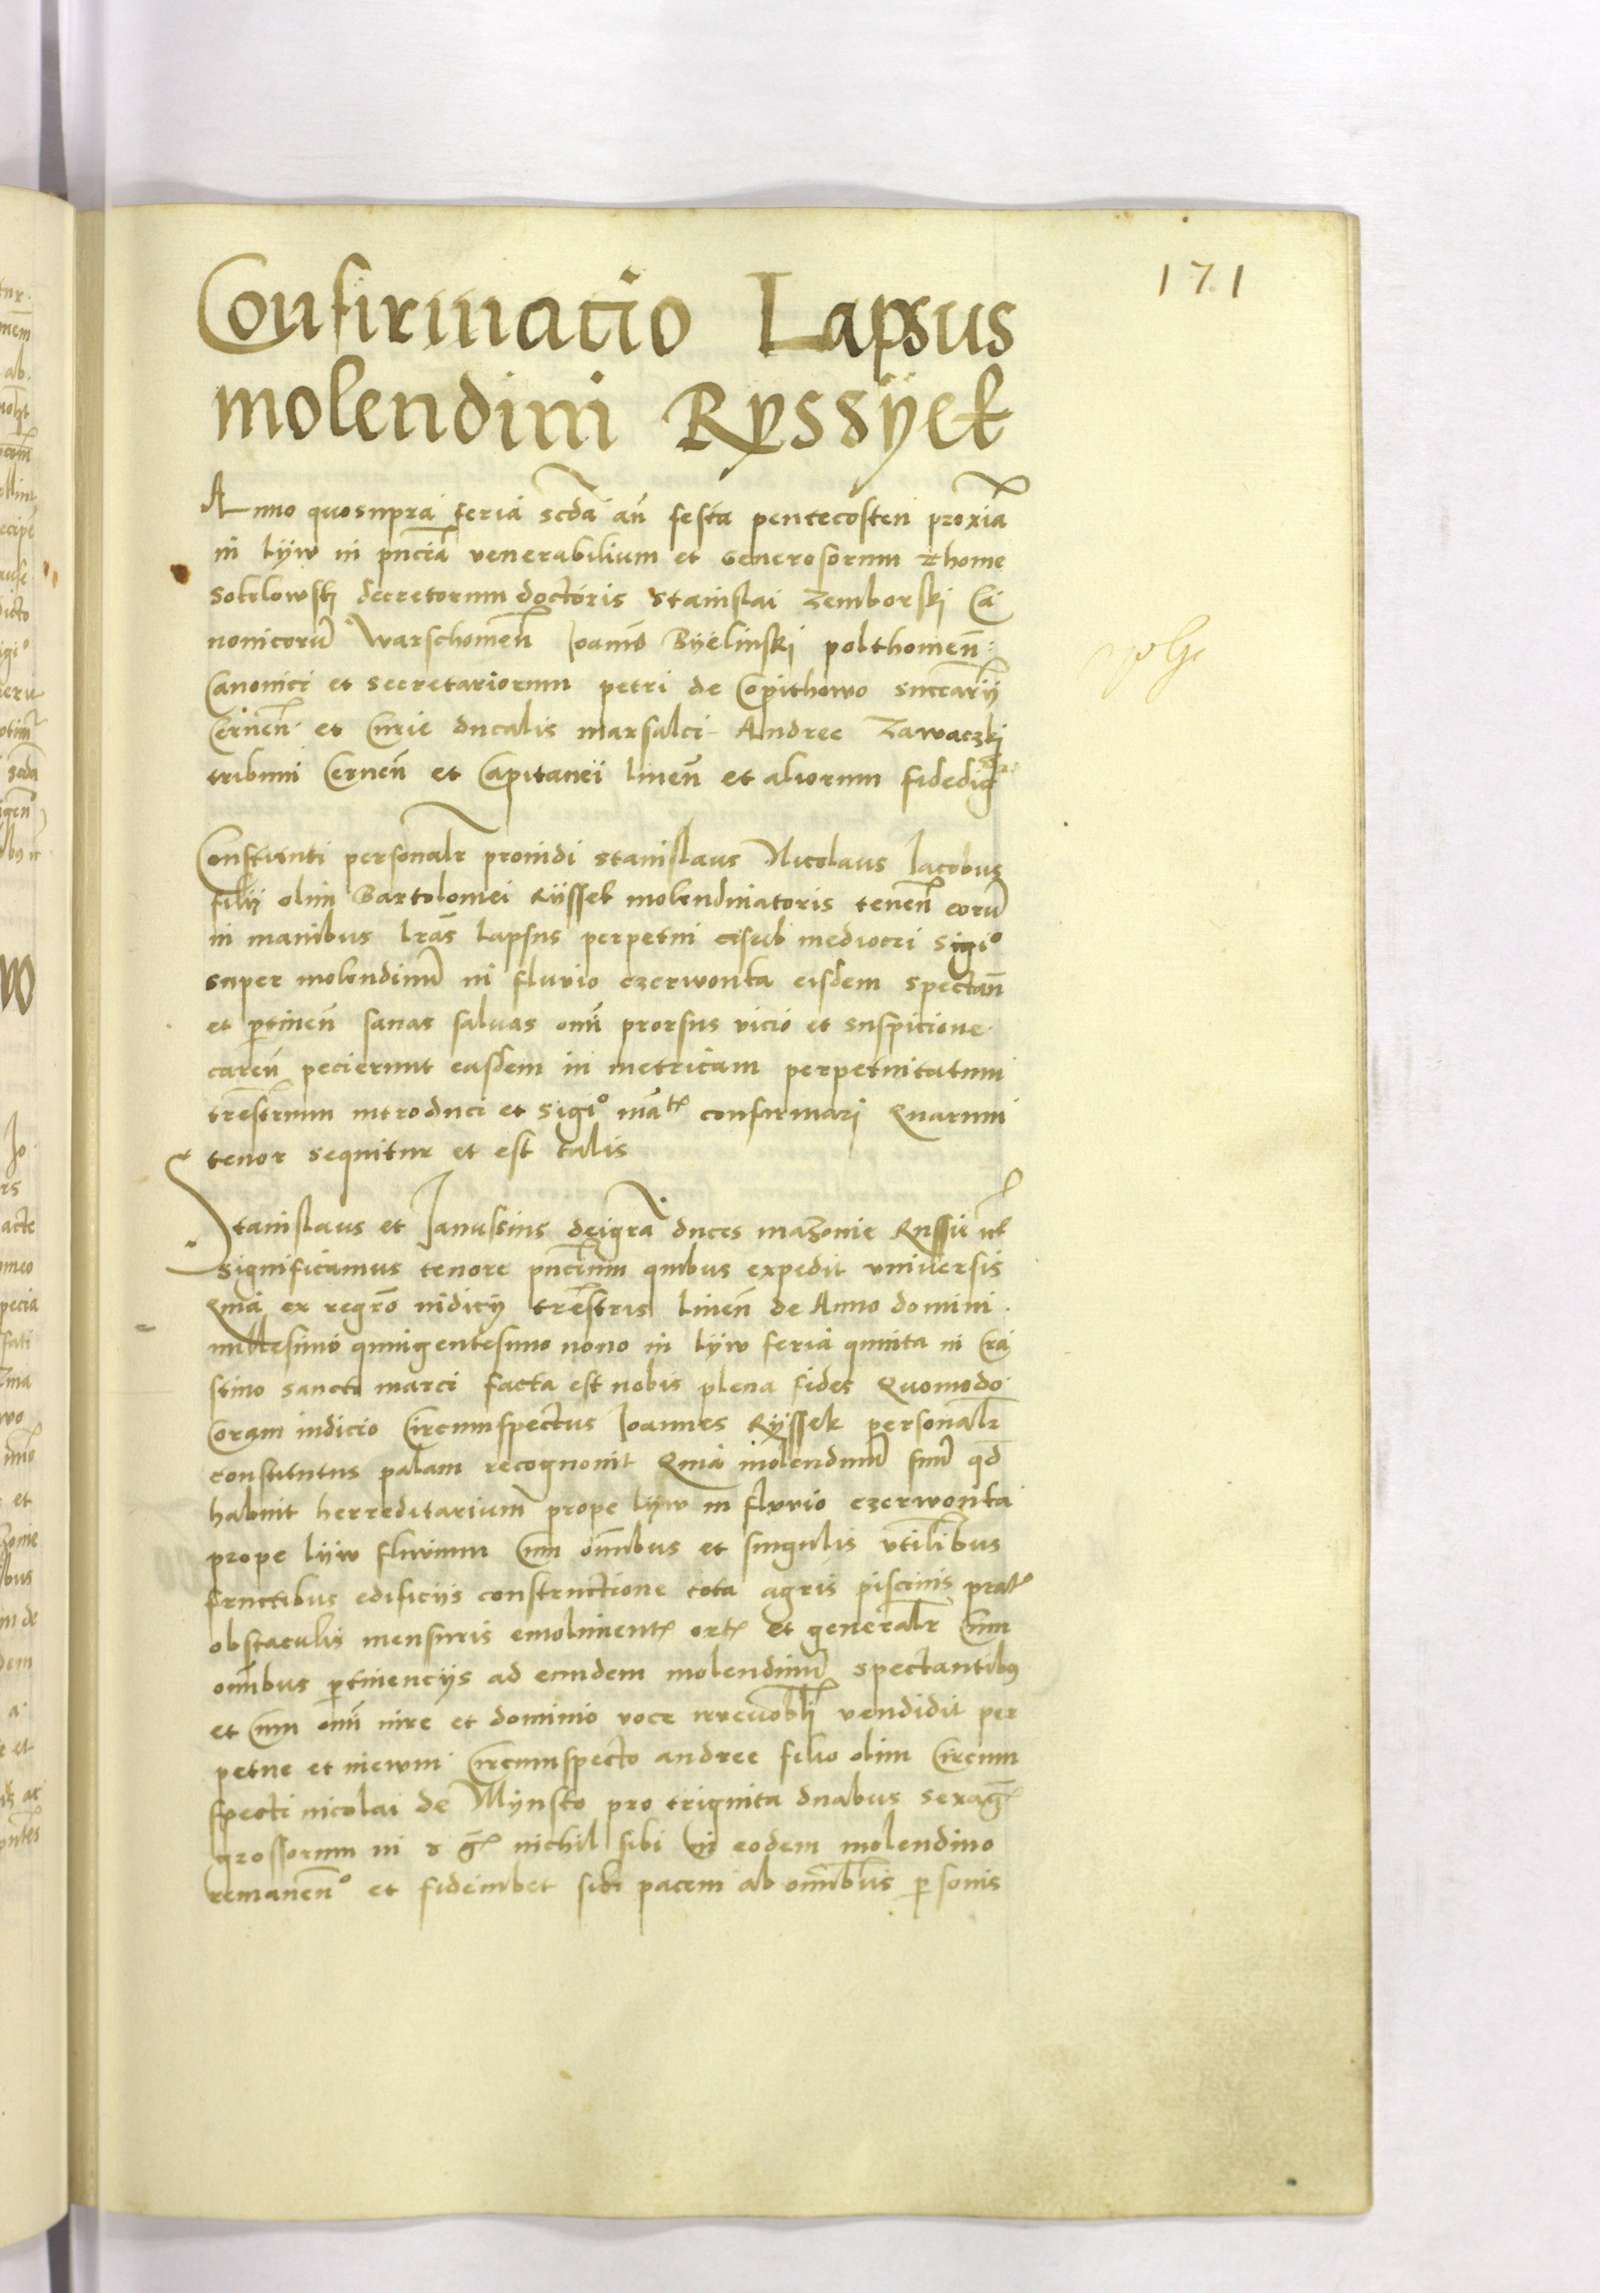 171
Confirmacio Lapsus
molendini Ryssyek
Anno quosupra feria scda an festa pentecosten proxia
in lyw in pncia venerabilium et Generosorum Thome
Sokolowski decretorum doctoris Stanislai Zemborski Ca
nonicorum Warschomen Joannis Byelinski polthomen
Canonici et secretariorum petri de Copithowo succarij
Cernen et Curie ducalis marsalci Andree Zawaczki
tribuni Cernen et Capitanei liuen et aliorum fidedig
Constituti personalr prouidi Stanislaus Nicolaus Jacobus
filij olim Bartolomei Ryssek molendinatoris tenen eorum
in manibus lras lapsus perpetui mediocri sigio
super molendinum in fluuio czerwonka eisdem spectan
et ptinen sanas saluas omi prorsus vicio et suspicione
caren pecierunt easdem in metricam perpetuitatum
trestrium introduci et sigio confirmari Quarum
tenor sequitur et est talis
Stanislaus et Janussius deigra duces mazouie Russie
significamus tenore pncium quibus expedit vniuersis
Quia ex regro iudicij trestris liuen de Anno domini
millesimo quingentesimo nono in lyw feria quinta in Cra
stino sancti marci facta est nobis plena fides Quomodo
Coram iudicio Circumspectus Joannes Ryssek personalr
constitutus palam recognouit Quia molendinum suum qd
habuit herreditarium prope lyw in fluuio czerwonka
prope lyw fluuium Cum omibus et singulis vtilibus
fructibus edificijs constructione tota agris piscinis prat
obstaculis mensuris emoliment ort et generalr Cum
omibus ptinencijs ad eundem molendinum spectantibus
et Cum omi iure et dominio voce irreuobli vendidit per
petue et in ewm Circumspecto andree filio olim Circum
specti nicolai de Mynsko pro triginta duabus sexag
grossorum in nichil sibi in eodem molendino
remanen et fideiubet sibi pacem ab omibus psonis